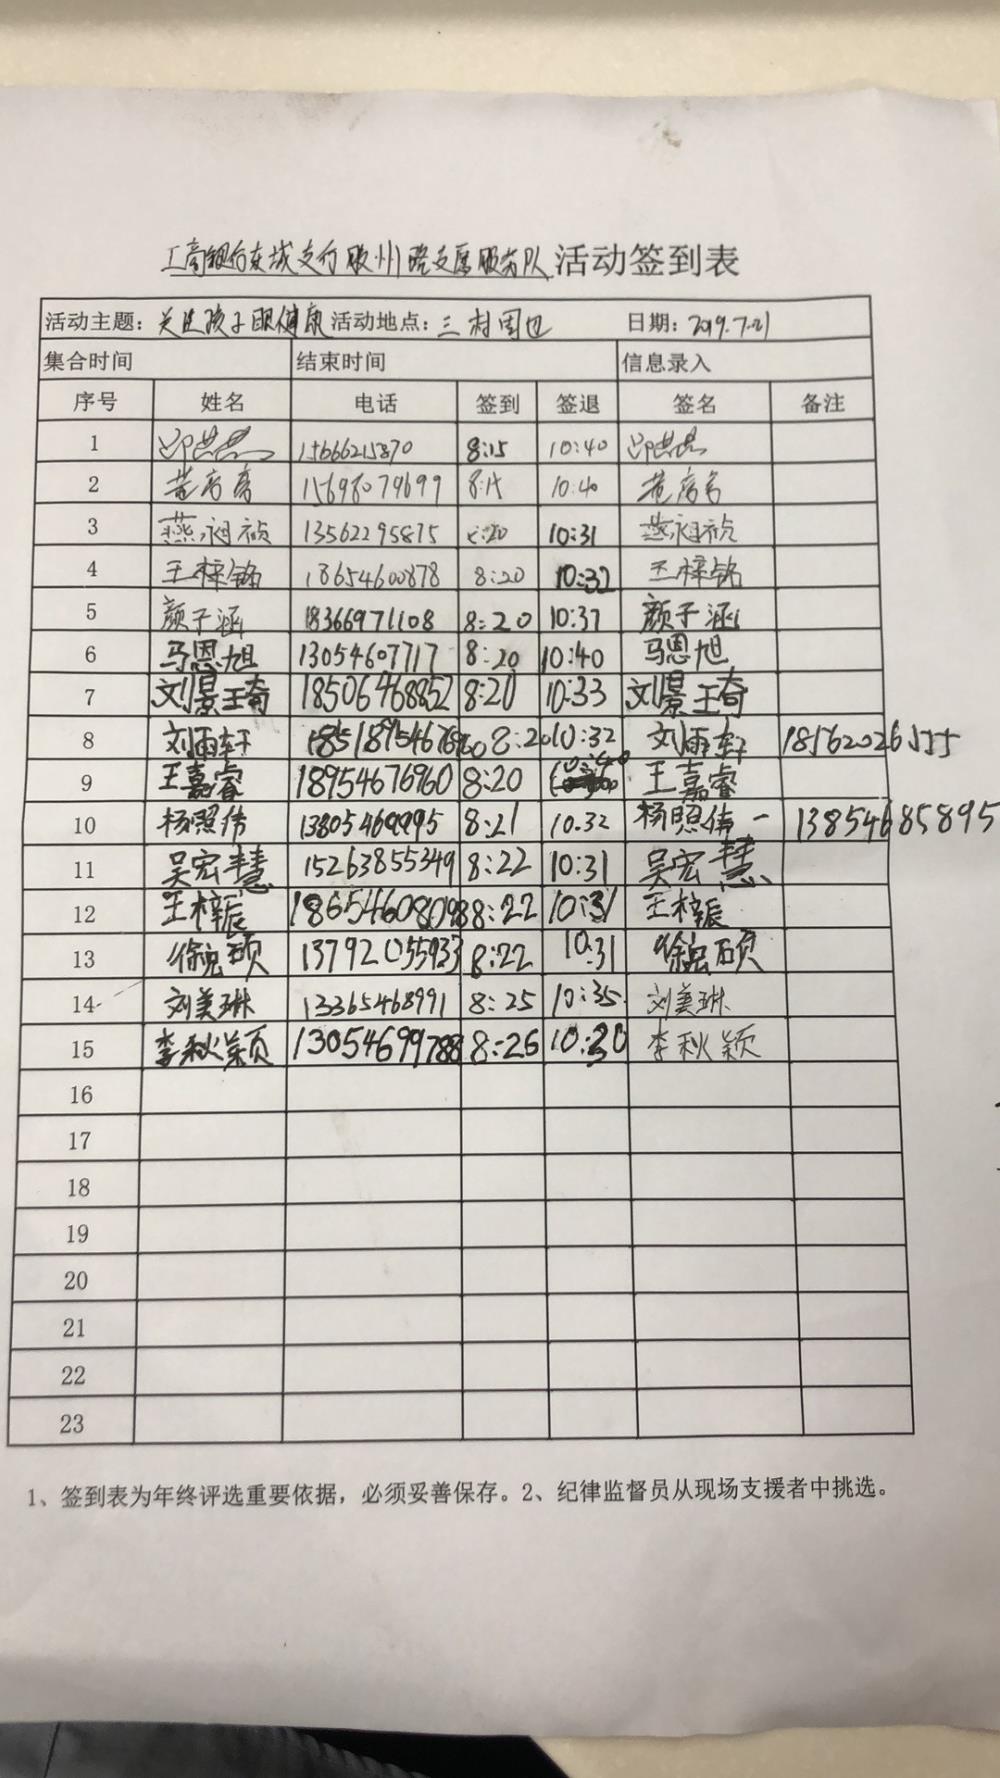 工商银行东城支行胶州路支原服务队 活动签到表
活动主题：关注孩子眼健康 活动地点：三村周边 日期：2019.7.21
集合时间 结束时间 信息录入
序号 姓名 电话 签到 签退 签名 备注
1 15666215870 8:15 10:40
2 15698079699 8:15 10:40
3 燕昶祯 13562295875 8:20 10:31 燕昶祯
4 王梓铭 18654600878 8:20 10:32 王梓铭
5 颜子涵 18366971108 8:20 10:37 颜子涵
6 马恩旭 13054607717 8:20 10:40 马恩旭
7 刘景琦 18506468852 8:20 10:33 刘景琦
8 刘雨轩 8:20 10:32 刘雨轩 18562026555
9 王嘉睿 18954676960 8:20 10:40 王嘉睿
10 杨照伟 8:21 10:32 杨照伟 13854685895
11 吴宏慧 15263855349 8:22 10:31 吴宏慧
12 王梓辰 18654608098 8:22 10:31 王梓辰
13 13792055933 8:22 10:31
14 刘美琳 13365468991 8:25 10:35 刘美琳
15 李秋颖 13054699788 8:26 10:30 李秋颖
16
17
18
19
20
21
22
23
1、签到表为年终评选重要依据，必须妥善保存。2、纪律监督员从现场支援者中挑选。